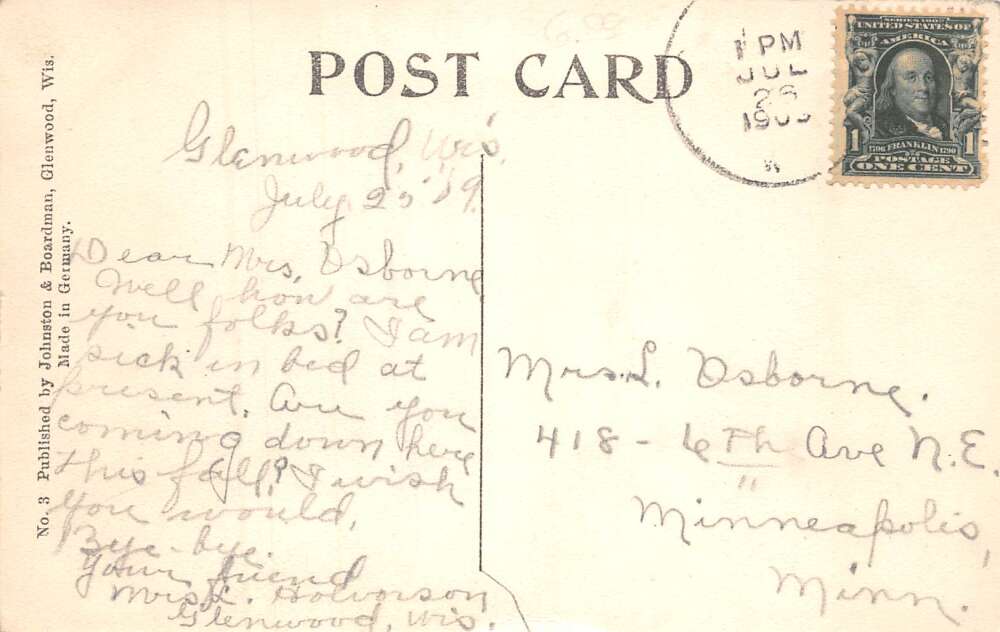 POST CARD
1 PM
JUL
26
190
SERIES 1902
UNITED STATES OF
AMERICA
1 1
1706 FRANKLIN 1790
POSTAGE
ONE CENT
No. 3 Published by Johnston & Boardman, Glenwood, Wis.
Made in Germany.
Glenwood, Wis.
July 25 '09.
Dear Mrs. Osborne
Well how are
you folks? I am
sick in bed at
present. Are you
coming down here
this fall? I wish
you would.
Bye-bye.
Your friend
Mrs. L. Halvorson
Glenwood, Wis.
Mrs. L. Osborne.
418 - 6th Ave N.E.
Minneapolis,
Minn.